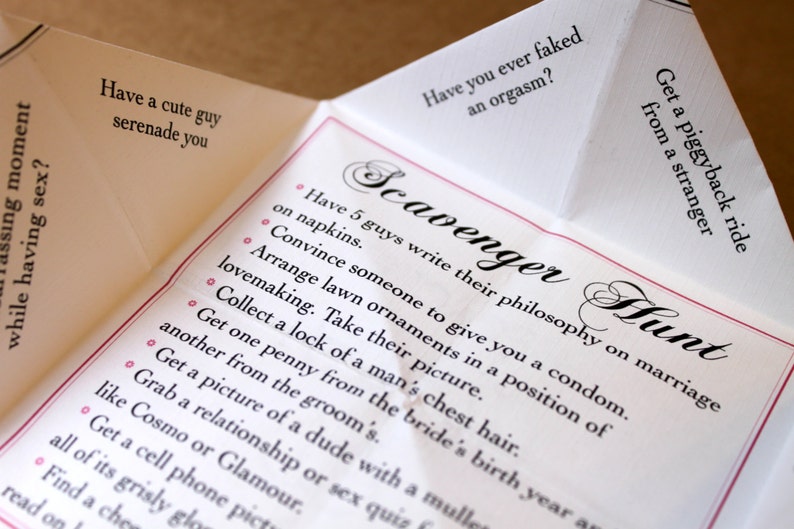 Have a cute guy
serenade you
Have you ever faked
an orgasm?
Get a piggyback ride
from a stranger
moment
while having sex?
Scavenger Hunt
Have 5 guys write their philosophy on marriage
on napkins.
Convince someone to give you a condom.
Arrange lawn ornaments in a position of
lovemaking. Take their picture.
Collect a lock of a man's chest hair.
Get one penny from the bride's birth year
another from the groom's.
Get a picture of a dude with a mullet
Grab a relationship or sex quiz
like Cosmo or Glamour.
Get a cell phone
all of its grisly
Find a
read on